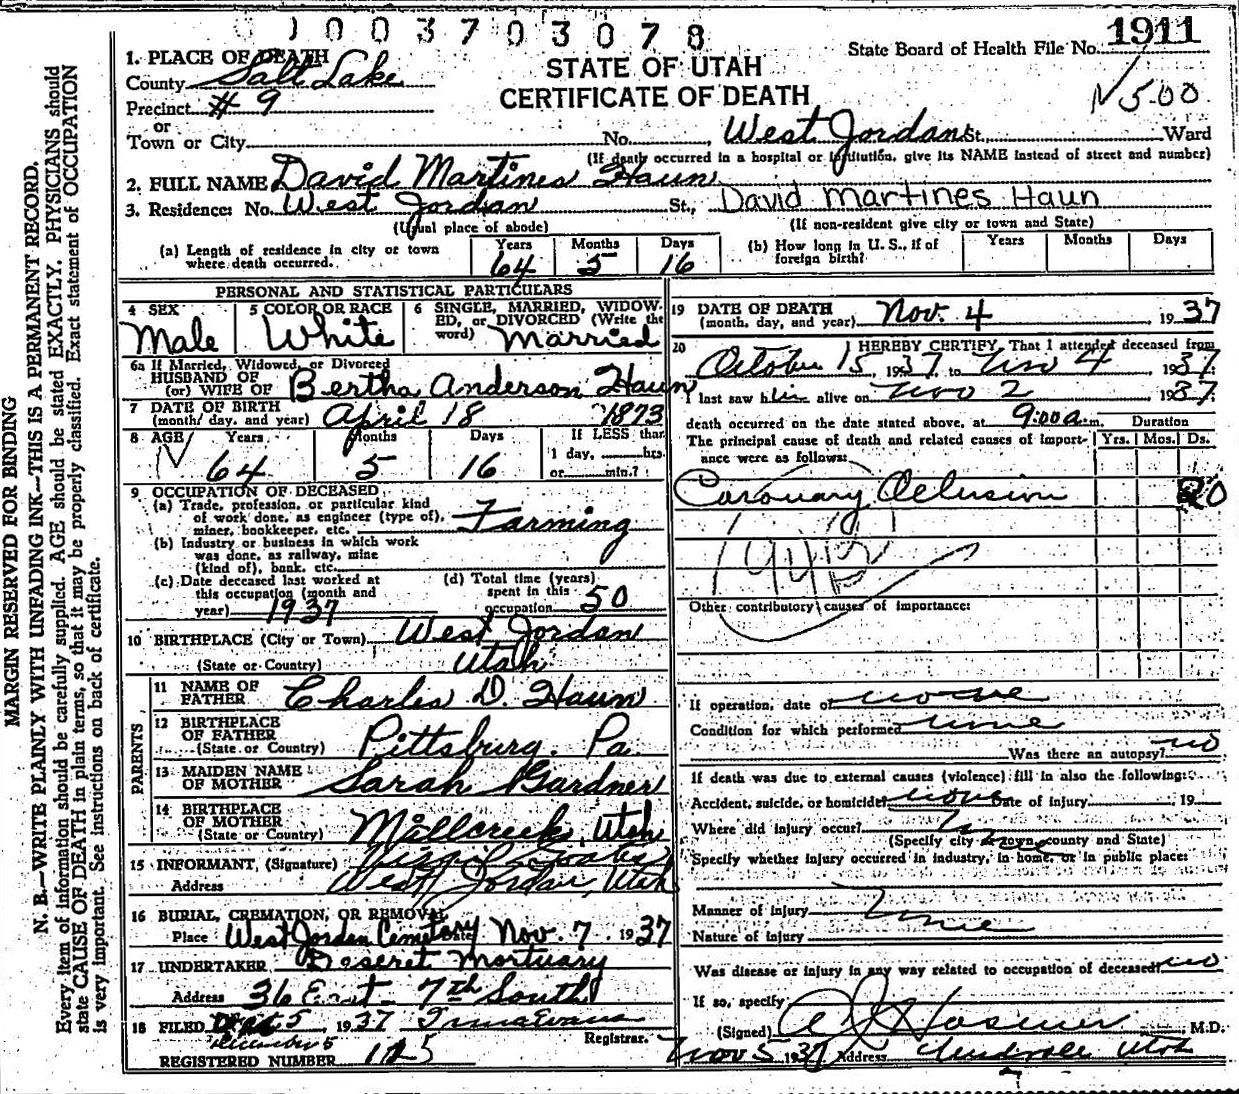 1003703078
State Board of Health File No. 1911
1. PLACE OF DEATH
STATE OF UTAH
County Salt Lake
CERTIFICATE OF DEATH
Precinct # 9
√ 5.00
or
Town or City No. West Jordan St. Ward
(If death occurred in a hospital or institution, give its NAME instead of street and number)
2. FULL NAME David Martines Haun
3. Residence: No. West Jordan St., David Martines Haun
(Usual place of abode) (If non-resident give city or town and State)
(a) Length of residence in city or town where death occurred. Years 64 Months 5 Days 16
(b) How long in U. S., if of foreign birth? Years Months Days
PERSONAL AND STATISTICAL PARTICULARS
4 SEX Male
5 COLOR OR RACE White
6 SINGLE, MARRIED, WIDOWED, or DIVORCED (Write the word) Married
6a If Married, Widowed, or Divorced
HUSBAND OF
(or) WIFE OF Bertha Anderson Haun
7 DATE OF BIRTH
(month, day, and year) April 18 1873
8 AGE Years 64 Months 5 Days 16
If LESS than
1 day, hrs.
or min.?
9 OCCUPATION OF DECEASED
(a) Trade, profession, or particular kind
of work done, as engineer (type of),
miner, bookkeeper, etc. Farming
(b) Industry or business in which work
was done, as railway, mine
(kind of), bank, etc.
(c) Date deceased last worked at
this occupation (month and
year) 1937
(d) Total time (years)
spent in this
occupation 50
10 BIRTHPLACE (City or Town) West Jordan
(State or Country) Utah
PARENTS
11 NAME OF
FATHER Charles D. Haun
12 BIRTHPLACE
OF FATHER
(State or Country) Pittsburg. Pa
13 MAIDEN NAME
OF MOTHER Sarah Gardner
14 BIRTHPLACE
OF MOTHER
(State or Country) Millcreek, Utah
15 INFORMANT, (Signature)
Address West Jordan, Utah
16 BURIAL, CREMATION, OR REMOVAL
Place West Jordan Cemetary Date Nov. 7 1937
17 UNDERTAKER Deseret Mortuary
Address 36 East 7th South
18 FILED 5, 1937 Registrar.
December 5
REGISTERED NUMBER 125
19 DATE OF DEATH
(month, day, and year) Nov. 4 1937
20 I HEREBY CERTIFY, That I attended deceased from
October 15, 1937, to Nov 4 1937
I last saw him alive on Nov 2 1937
death occurred on the date stated above, at 9:00 a.m.
The principal cause of death and related causes of importance were as follows:
Duration
Yrs. Mos. Ds.
Coronary Oclusion 20
94B
Other contributory causes of importance:
If operation, date of none
Condition for which performed none
Was there an autopsy? no
If death was due to external causes (violence) fill in also the following:
Accident, suicide, or homicide? none Date of injury 19
Where did injury occur?
(Specify city or town, county and State)
Specify whether injury occurred in industry, in home, or in public place:
Manner of injury
Nature of injury none
Was disease or injury in any way related to occupation of deceased? no
If so, specify
(Signed) M.D.
Nov 5 1937 Address Midvale Utah
MARGIN RESERVED FOR BINDING
N. B.—WRITE PLAINLY WITH UNFADING INK—THIS IS A PERMANENT RECORD.
Every item of information should be carefully supplied. AGE should be stated EXACTLY. PHYSICIANS should
state CAUSE OF DEATH in plain terms, so that it may be properly classified. Exact statement of OCCUPATION
is very important. See instructions on back of certificate.